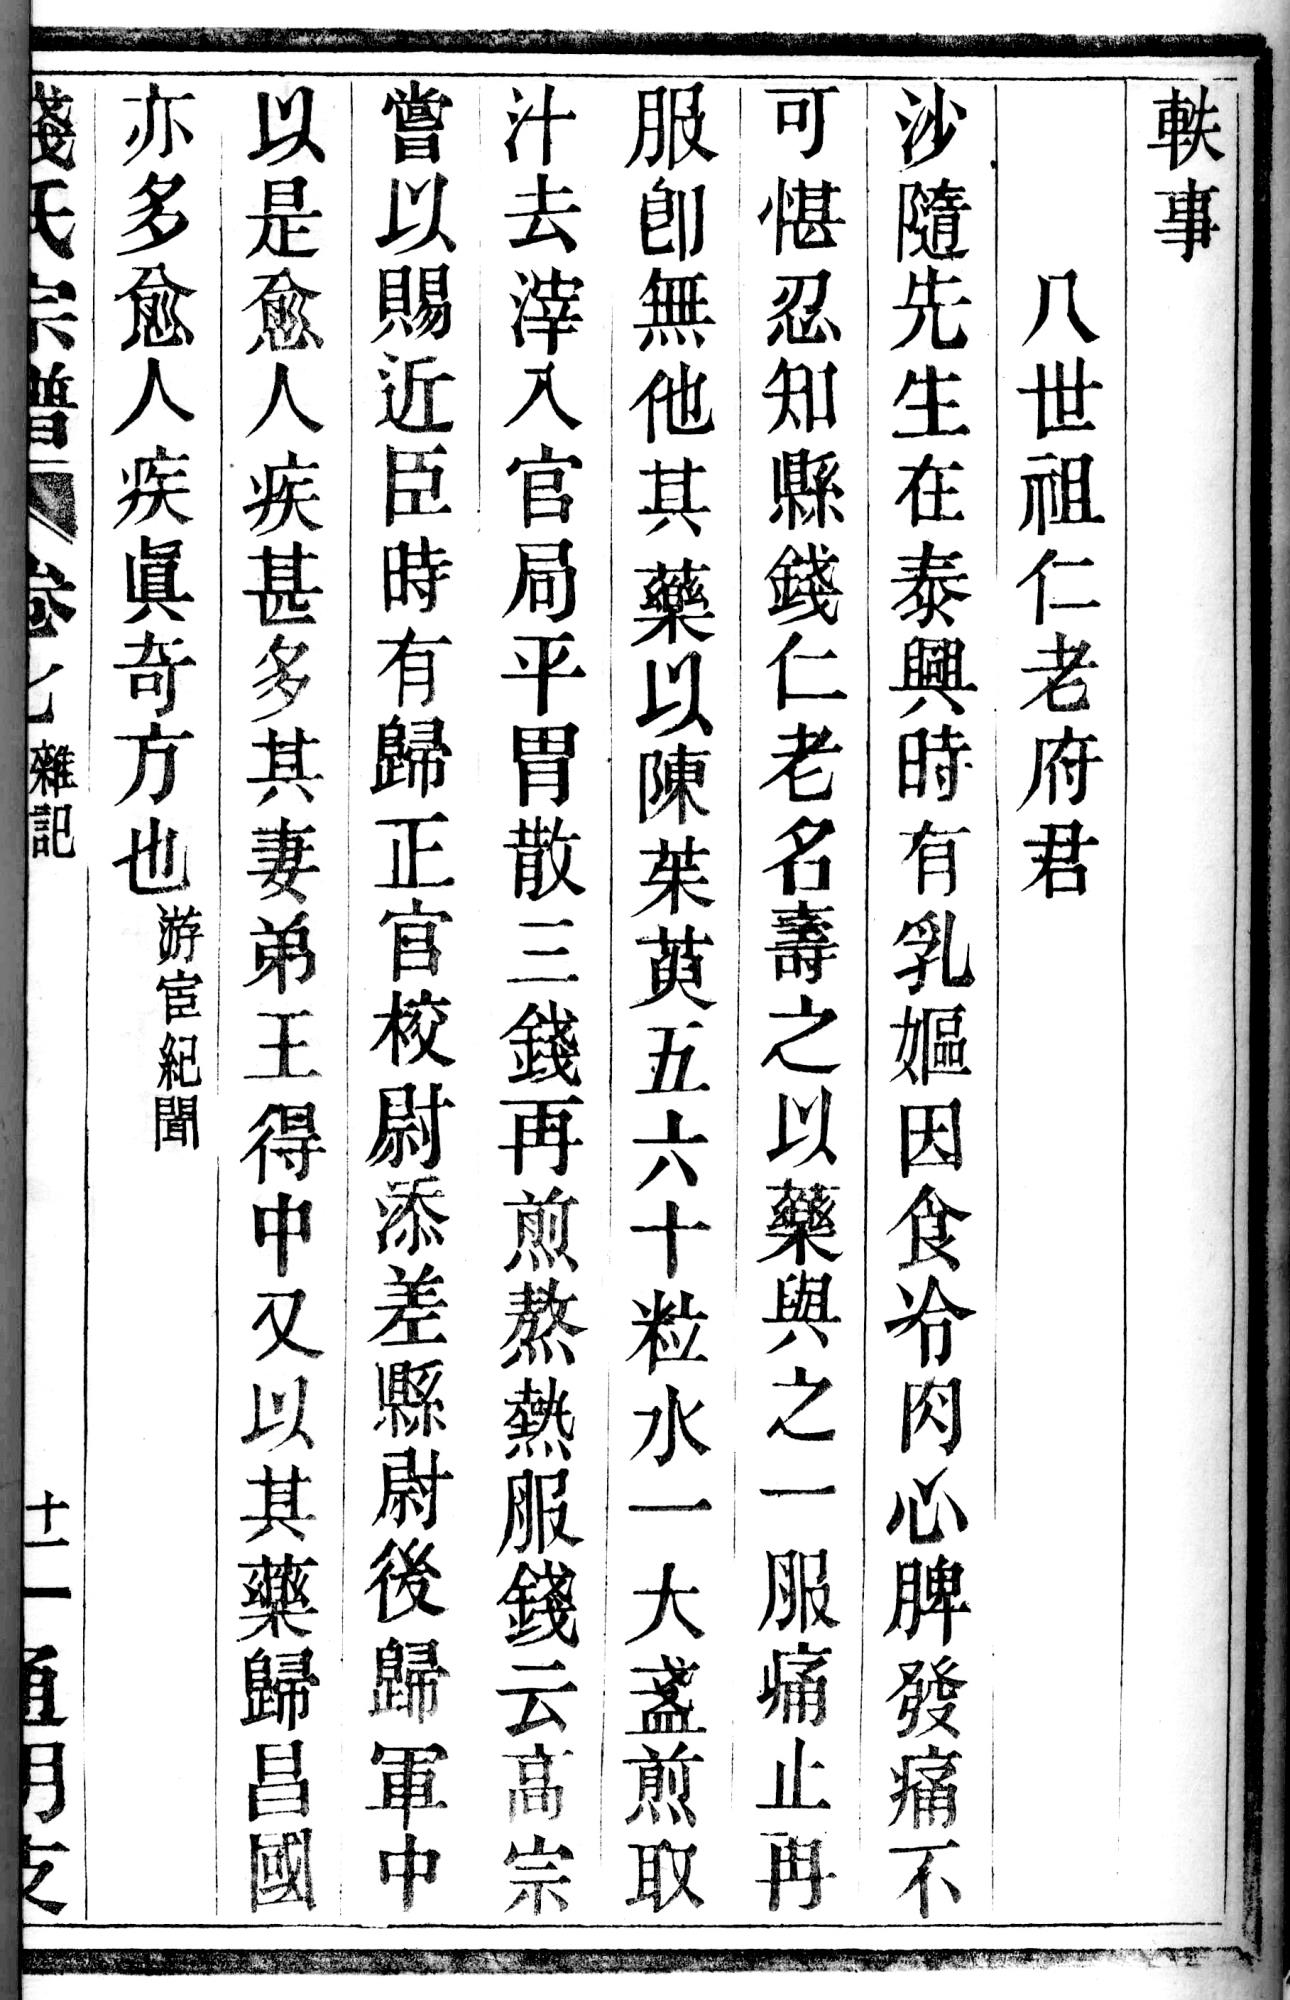 軼事
八世祖仁老府君
沙隨先生在泰興時有乳嫗因食冷肉心脾發痛不
可愖忍知縣錢仁老名壽之以藥與之一服痛止再
服卽無他其藥以陳茱萸五六十粒水一大盞煎取
汁去滓入官局平胃散三錢再煎熬熱服錢云高宗
嘗以賜近臣時有歸正官校尉添差縣尉後歸軍中
以是愈人疾甚多其妻弟王得中又以其藥歸昌國
亦多愈人疾眞奇方也游宦紀聞
錢氏宗譜 卷七 雜記 十一 通明支